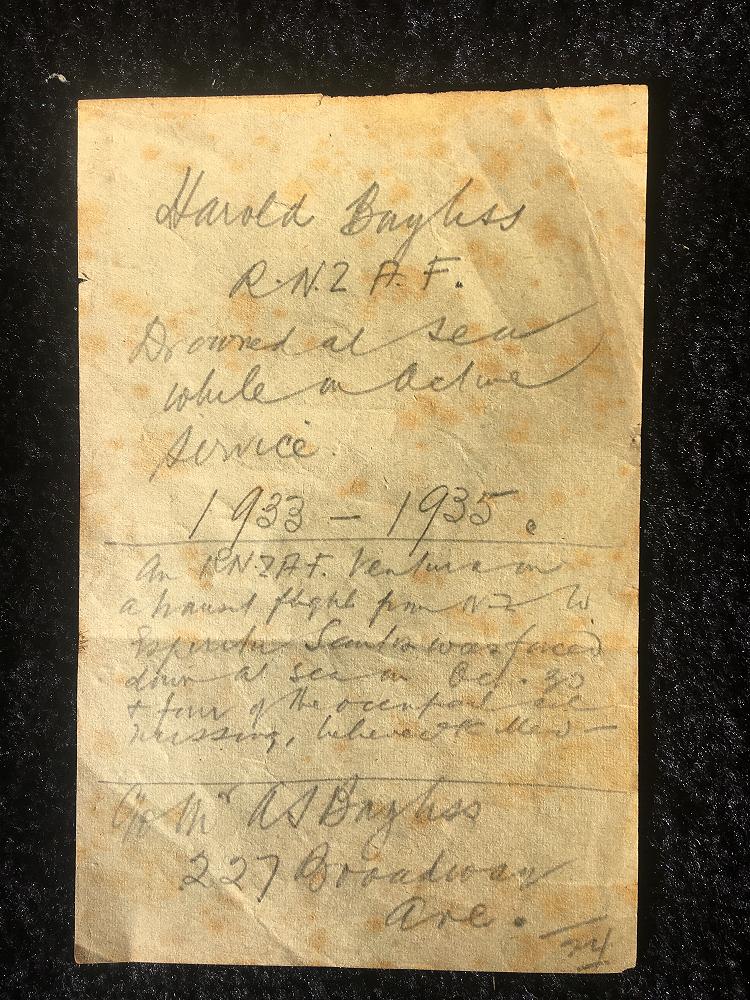 Harold Bayliss
R.N.Z A. F.
Drowned at sea
while on Active
Service.
1933 - 1935.
An R.N.Z.A.F. Ventura on
a transit flight from N.Z. to
Espiritu Santo was forced
down at sea on Oct. 30
+ four of the occupants are
missing, believed
C/o Mr A S Bayliss
227 Broadway
Ave.
24